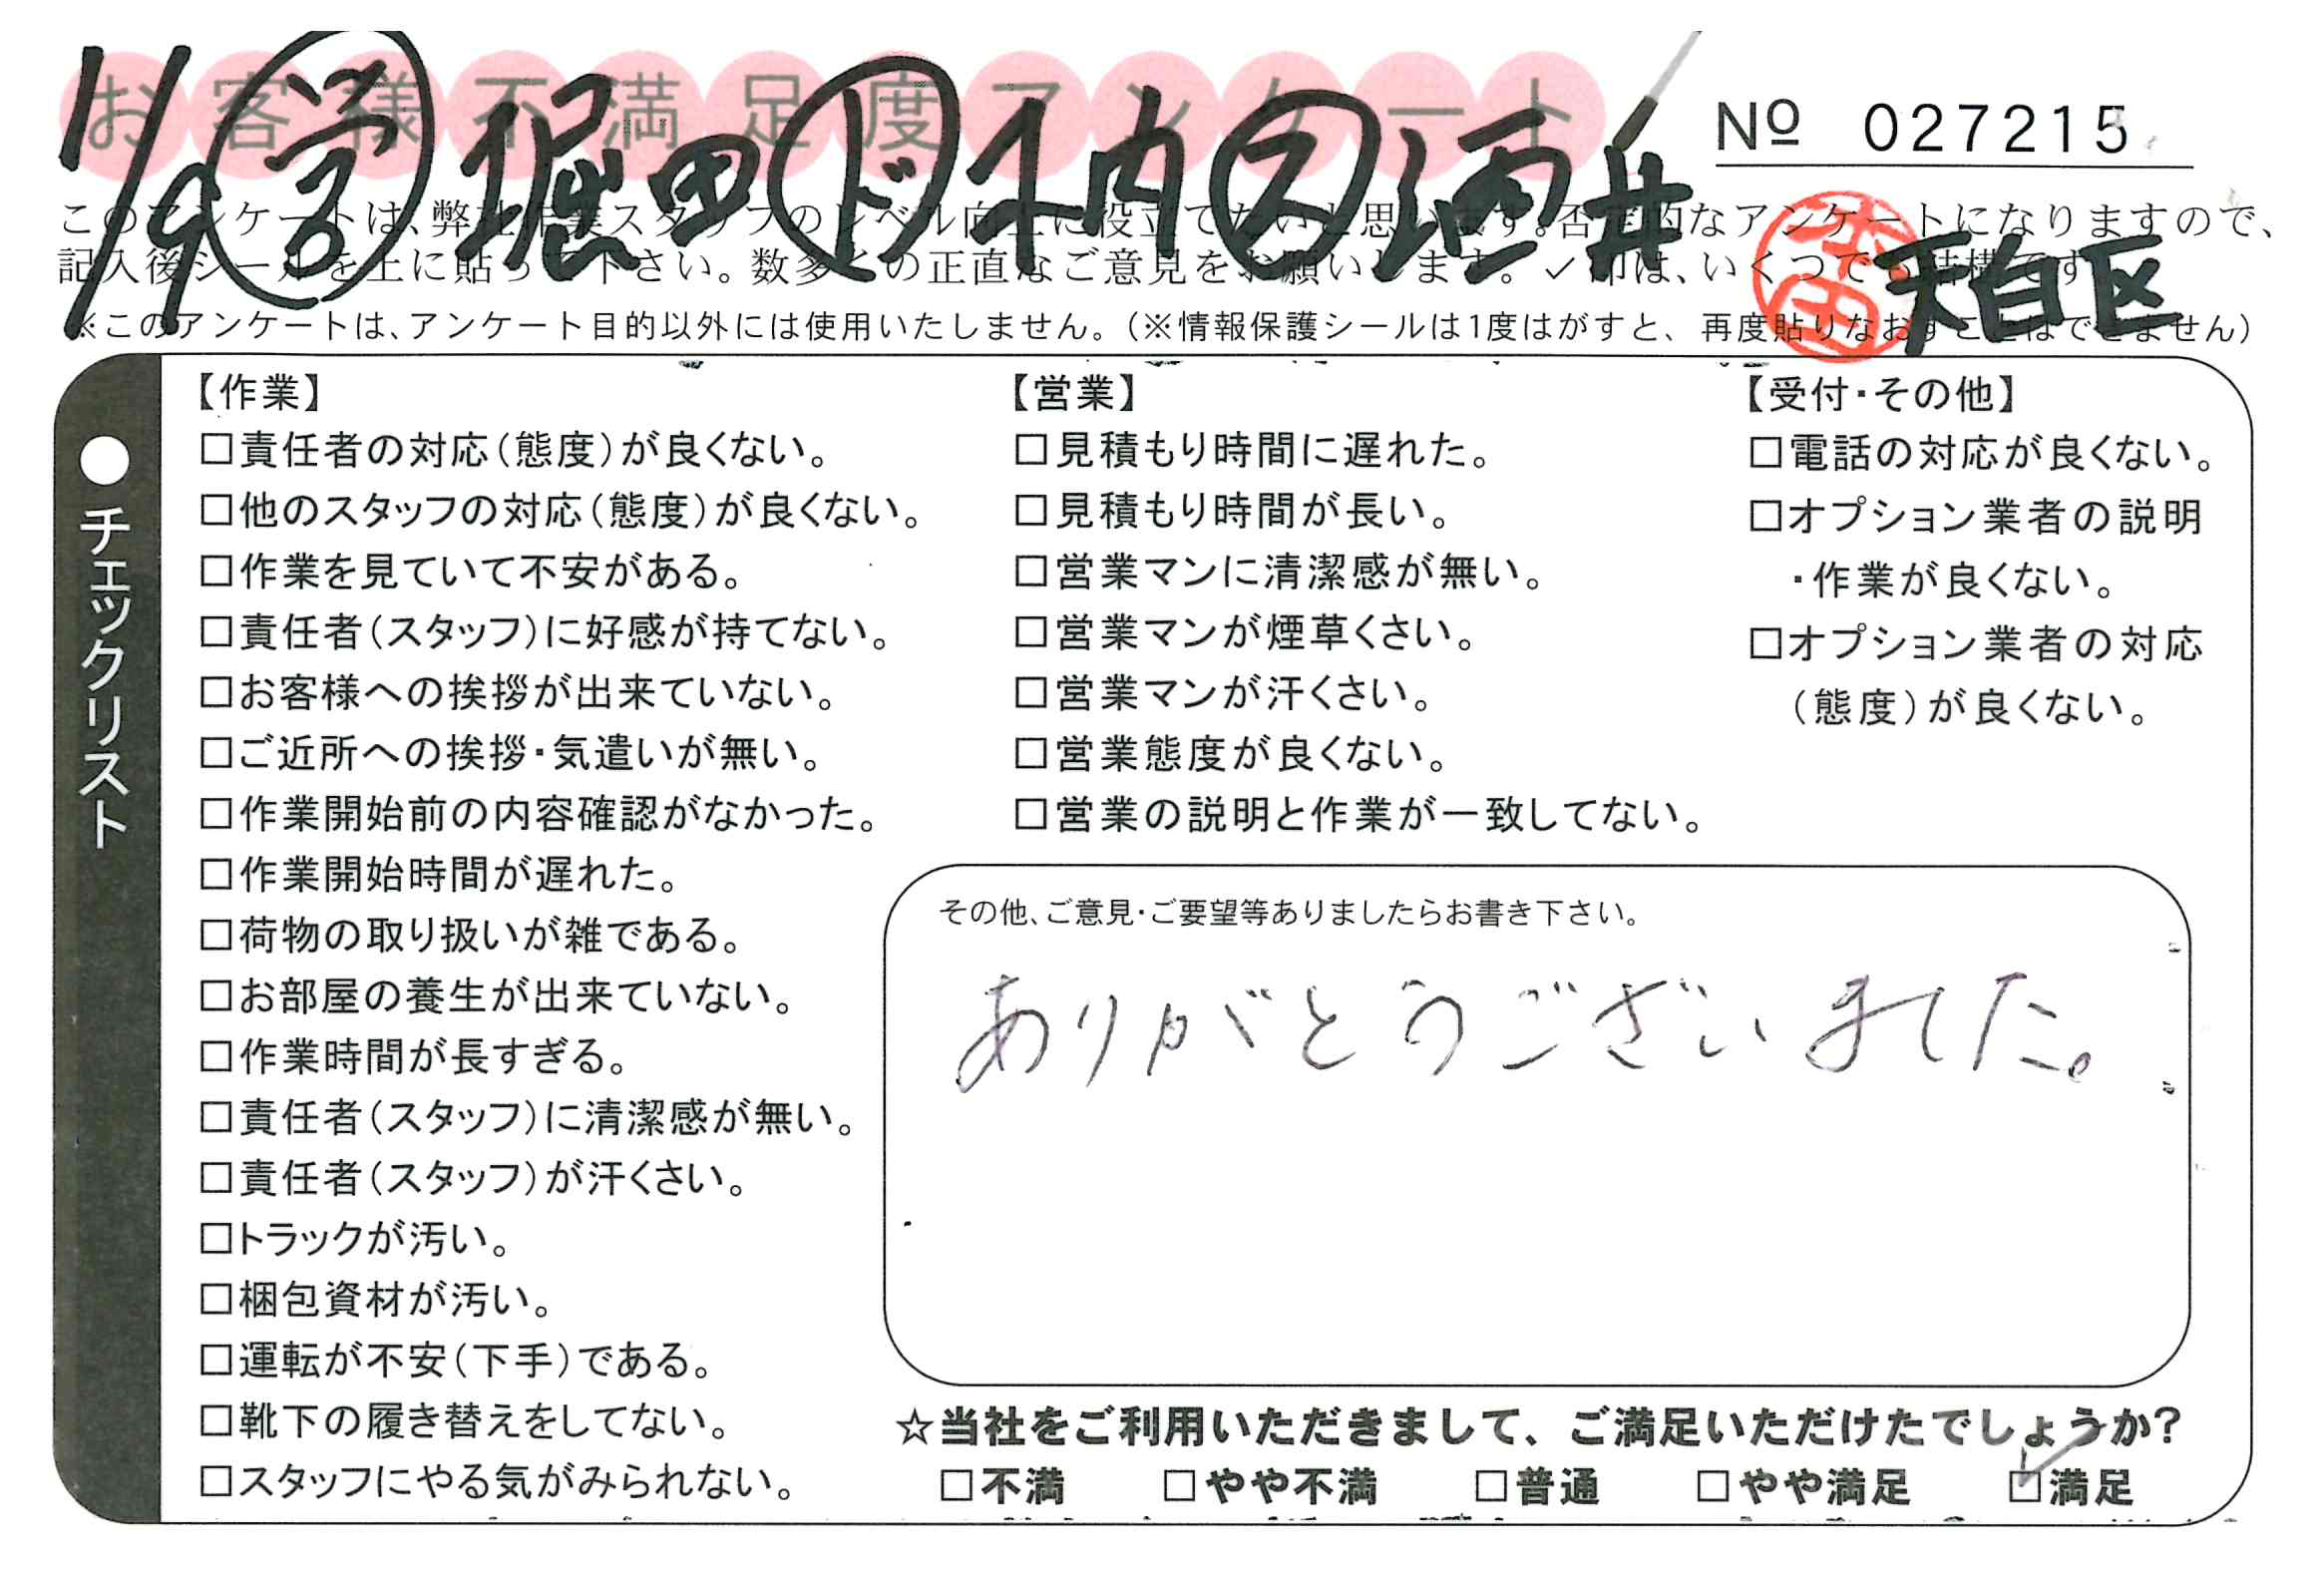 お客様不満足度アンケート
1/9 堀田 ド 木内 ス 酒井
№ 027215
このアンケートは、弊社作業スタッフのレベル向上に役立てたいと思います。否定的なアンケートになりますので、
記入後シールを上に貼って下さい。数多くの正直なご意見をお願いします。✓印は、いくつでも結構です
天白区
※このアンケートは、アンケート目的以外には使用いたしません。（※情報保護シールは1度はがすと、再度貼りなおすことはできません）
●チェックリスト
【作業】
□責任者の対応（態度）が良くない。
□他のスタッフの対応（態度）が良くない。
□作業を見ていて不安がある。
□責任者（スタッフ）に好感が持てない。
□お客様への挨拶が出来ていない。
□ご近所への挨拶・気遣いが無い。
□作業開始前の内容確認がなかった。
□作業開始時間が遅れた。
□荷物の取り扱いが雑である。
□お部屋の養生が出来ていない。
□作業時間が長すぎる。
□責任者（スタッフ）に清潔感が無い。
□責任者（スタッフ）が汗くさい。
□トラックが汚い。
□梱包資材が汚い。
□運転が不安（下手）である。
□靴下の履き替えをしてない。
□スタッフにやる気がみられない。
【営業】
□見積もり時間に遅れた。
□見積もり時間が長い。
□営業マンに清潔感が無い。
□営業マンが煙草くさい。
□営業マンが汗くさい。
□営業態度が良くない。
□営業の説明と作業が一致してない。
【受付・その他】
□電話の対応が良くない。
□オプション業者の説明
・作業が良くない。
□オプション業者の対応
（態度）が良くない。
その他、ご意見・ご要望等ありましたらお書き下さい。
ありがとうございました。
☆当社をご利用いただきまして、ご満足いただけたでしょうか？
□不満 □やや不満 □普通 □やや満足 ☑満足